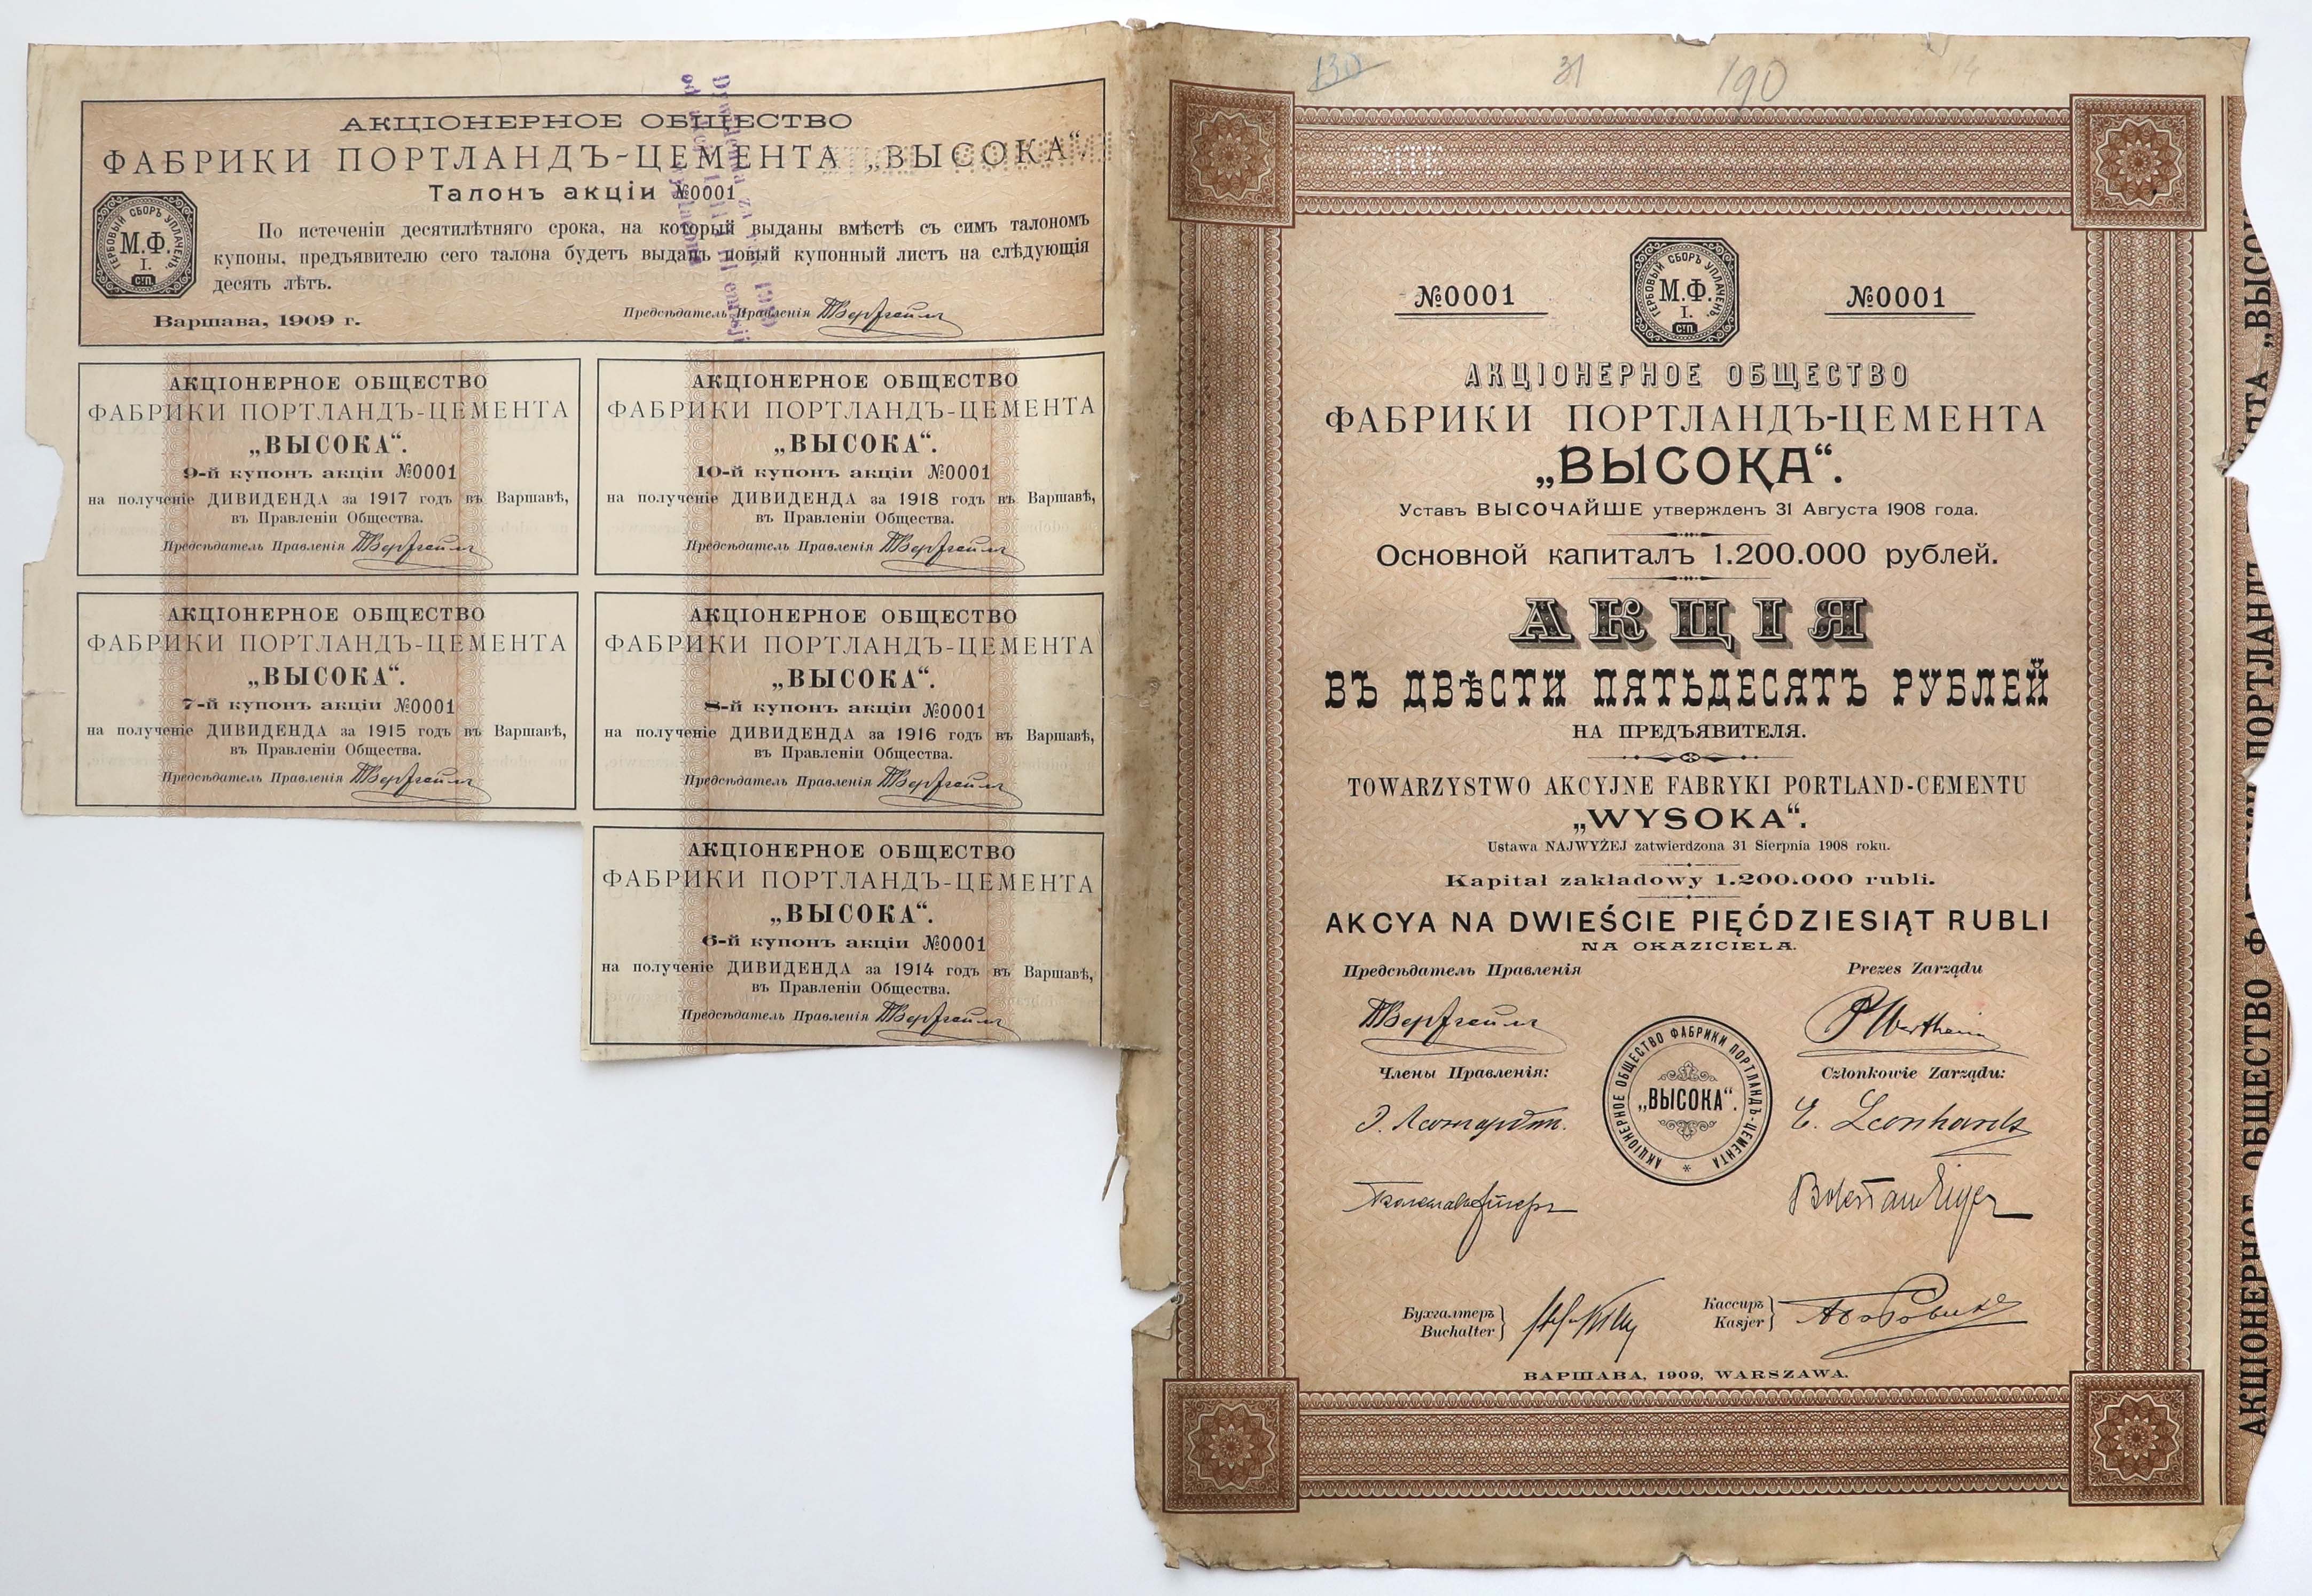 АКЦІОНЕРНОЕ ОБЩЕСТВО
ФАБРИКИ ПОРТЛАНДЪ-ЦЕМЕНТА „ВЫСОКА“.
Талонъ акціи №0001
ГЕРБОВЫЙ СБОРЪ УПЛАЧЕНЪ.
М.Ф.
I.
СП.
По истеченіи десятилѣтняго срока, на который выданы вмѣстѣ съ симъ талономъ
купоны, предъявителю сего талона будетъ выданъ новый купонный листъ на слѣдующія
десять лѣтъ.
Варшава, 1909 г.
Предсѣдатель Правленія
АКЦІОНЕРНОЕ ОБЩЕСТВО
ФАБРИКИ ПОРТЛАНДЪ-ЦЕМЕНТА
„ВЫСОКА“.
9-й купонъ акціи №0001
на полученіе ДИВИДЕНДА за 1917 годъ въ Варшавѣ,
въ Правленіи Общества.
Предсѣдатель Правленія
АКЦІОНЕРНОЕ ОБЩЕСТВО
ФАБРИКИ ПОРТЛАНДЪ-ЦЕМЕНТА
„ВЫСОКА“.
10-й купонъ акціи №0001
на полученіе ДИВИДЕНДА за 1918 годъ въ Варшавѣ,
въ Правленіи Общества.
Предсѣдатель Правленія
АКЦІОНЕРНОЕ ОБЩЕСТВО
ФАБРИКИ ПОРТЛАНДЪ-ЦЕМЕНТА
„ВЫСОКА“.
7-й купонъ акціи №0001
на полученіе ДИВИДЕНДА за 1915 годъ въ Варшавѣ,
въ Правленіи Общества.
Предсѣдатель Правленія
АКЦІОНЕРНОЕ ОБЩЕСТВО
ФАБРИКИ ПОРТЛАНДЪ-ЦЕМЕНТА
„ВЫСОКА“.
8-й купонъ акціи №0001
на полученіе ДИВИДЕНДА за 1916 годъ въ Варшавѣ,
въ Правленіи Общества.
Предсѣдатель Правленія
АКЦІОНЕРНОЕ ОБЩЕСТВО
ФАБРИКИ ПОРТЛАНДЪ-ЦЕМЕНТА
„ВЫСОКА“.
6-й купонъ акціи №0001
на полученіе ДИВИДЕНДА за 1914 годъ въ Варшавѣ,
въ Правленіи Общества.
Предсѣдатель Правленія
130 31 190 14
№0001
ГЕРБОВЫЙ СБОРЪ УПЛАЧЕНЪ.
М.Ф.
I.
СП.
№0001
АКЦІОНЕРНОЕ ОБЩЕСТВО
ФАБРИКИ ПОРТЛАНДЪ-ЦЕМЕНТА
„ВЫСОКА“.
Уставъ ВЫСОЧАЙШЕ утвержденъ 31 Августа 1908 года.
Основной капиталъ 1.200.000 рублей.
АКЦІЯ
ВЪ ДВѢСТИ ПЯТЬДЕСЯТЪ РУБЛЕЙ
НА ПРЕДЪЯВИТЕЛЯ.
TOWARZYSTWO AKCYJNE FABRYKI PORTLAND-CEMENTU
„WYSOKA“.
Ustawa NAJWYŻEJ zatwierdzona 31 Sierpnia 1908 roku.
Kapitał zakładowy 1.200.000 rubli.
AKCYA NA DWIEŚCIE PIĘĆDZIESIĄT RUBLI
NA OKAZICIELA.
Предсѣдатель Правленія
Prezes Zarządu
P Wertheim
Члены Правленія:
Członkowie Zarządu:
АКЦІОНЕРНОЕ ОБЩЕСТВО ФАБРИКИ ПОРТЛАНДЪ-ЦЕМЕНТА
„ВЫСОКА“.
E. Leonhardt
Bolesław Eiger
Бухгалтеръ
Buchalter
Кассиръ
Kasjer
ВАРШАВА, 1909, WARSZAWA.
АКЦІОНЕРНОЕ ОБЩЕСТВО ФАБРИКИ ПОРТЛАНДЪ